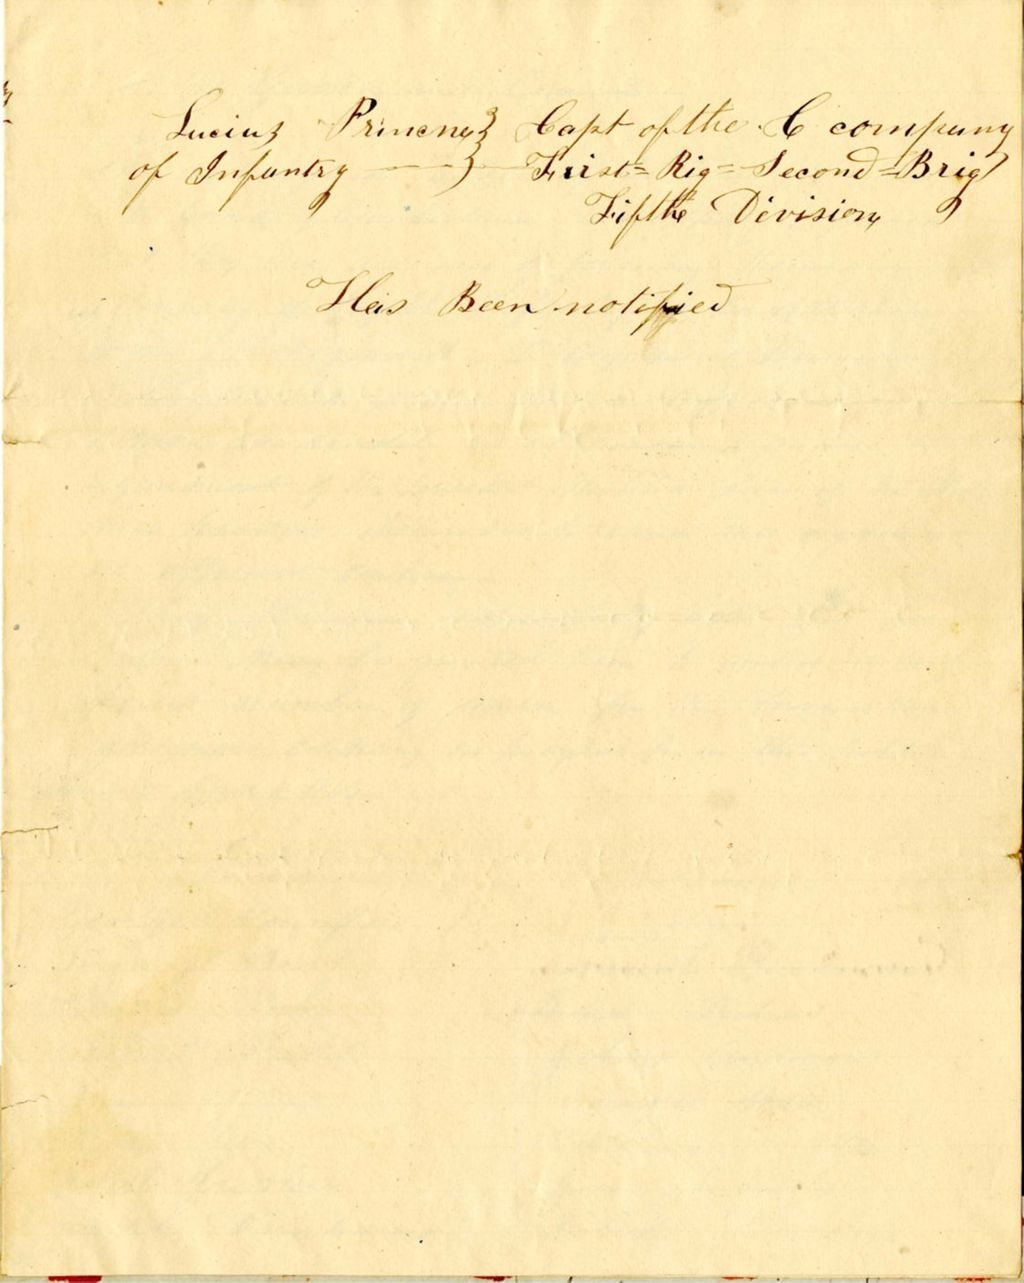 Lucius Capt of the C company
of Infantry First = Rig = Second = Brig
Fifth Division
Has Been notified